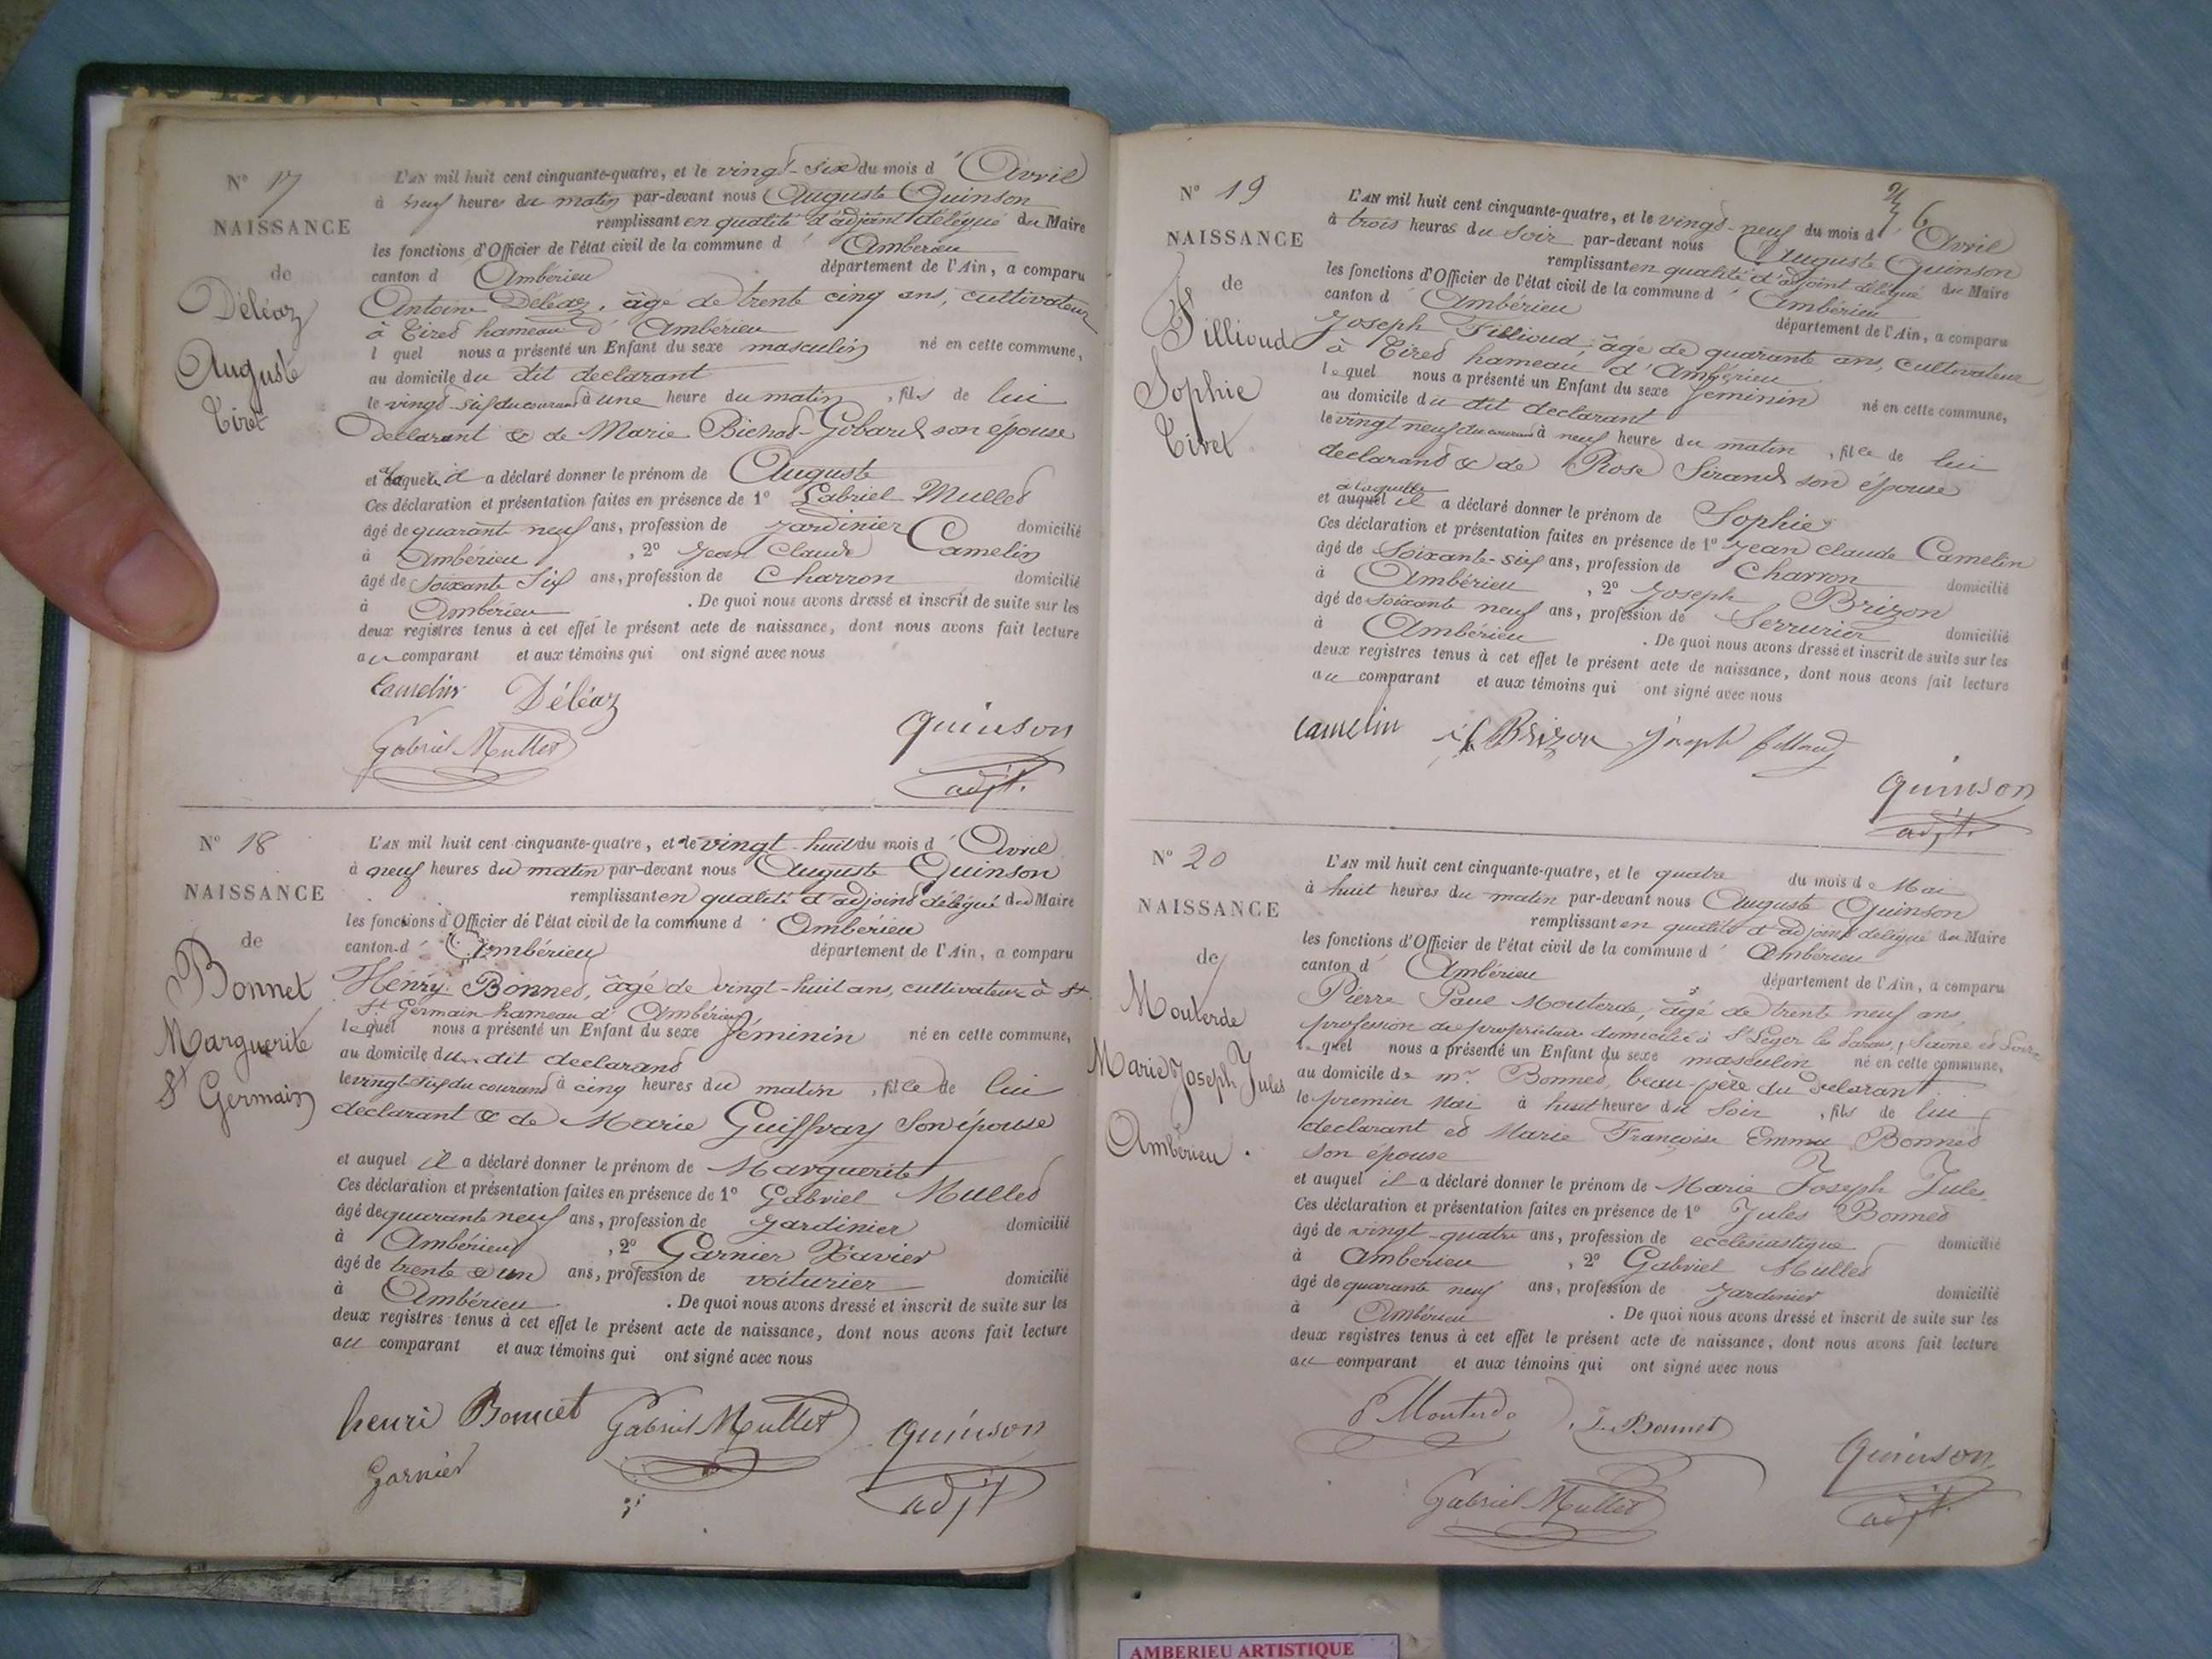 N° 17
NAISSANCE
de
Déléaz
Auguste
Tiret
L'AN mil huit cent cinquante-quatre, et le vingt-six du mois d'Avril
à neuf heures du matin par-devant nous Auguste Quinson
remplissant en qualité d'adjoint délégué du Maire
les fonctions d'Officier de l'état civil de la commune d'Ambérieu
canton d'Ambérieu département de l'Ain, a comparu
Antoine Déléaz, âgé de trente cinq ans, cultivateur
à Tiret hameau d'Ambérieu
l quel nous a présenté un Enfant du sexe masculin né en cette commune,
au domicile du dit declarant
le vingt-six du courant à une heure du matin, fils de lui
declarant & de Marie Bichat-Gobard son épouse
et auquel il a déclaré donner le prénom de Auguste
Ces déclaration et présentation faites en présence de 1° Gabriel Mullet
âgé de quarante neuf ans, profession de Jardinier domicilié
à Ambérieu, 2° Jean Claude Camelin
âgé de soixante six ans, profession de Charron domicilié
à Ambérieu. De quoi nous avons dressé et inscrit de suite sur les
deux registres tenus à cet effet le présent acte de naissance, dont nous avons fait lecture
au comparant et aux témoins qui ont signé avec nous
Camelin Déléaz
Gabriel Mullet
Quinson
adjt.
N° 18
NAISSANCE
de
Bonnet
Marguerite
St Germain
L'AN mil huit cent cinquante-quatre, et le vingt-huit du mois d'Avril
à neuf heures du matin par-devant nous Auguste Quinson
remplissant en qualité d'adjoint délégué du Maire
les fonctions d'Officier de l'état civil de la commune d'Ambérieu
canton d'Ambérieu département de l'Ain, a comparu
Hénry Bonnet, âgé de vingt-huit ans, cultivateur à St
St Germain hameau d'Ambérieu
lequel nous a présenté un Enfant du sexe féminin né en cette commune,
au domicile du dit declarant
le vingt-six du courant à cinq heures du matin, fille de lui
declarant & de Marie Guiffray son épouse
et auquel il a déclaré donner le prénom de Marguerite
Ces déclaration et présentation faites en présence de 1° Gabriel Mullet
âgé de quarante neuf ans, profession de Jardinier domicilié
à Ambérieu, 2° Garnier Xavier
âgé de trente & un ans, profession de voiturier domicilié
à Ambérieu. De quoi nous avons dressé et inscrit de suite sur les
deux registres tenus à cet effet le présent acte de naissance, dont nous avons fait lecture
au comparant et aux témoins qui ont signé avec nous
henri Bonnet Gabriel Mullet Quinson
Garnier adjt
6
N° 19
NAISSANCE
de
Fillioud
Sophie
Tiret
L'AN mil huit cent cinquante-quatre, et le vingt-neuf du mois d'Avril
à trois heures du soir par-devant nous Auguste Quinson
remplissant en qualité d'adjoint délégué du Maire
les fonctions d'Officier de l'état civil de la commune d'Ambérieu
canton d'Ambérieu département de l'Ain, a comparu
Joseph Fillioud, âgé de quarante ans, cultivateur
à Tiret hameau d'Ambérieu
lequel nous a présenté un Enfant du sexe féminin né en cette commune,
au domicile du dit declarant
le vingt neuf du courant à neuf heures du matin, fille de lui
declarant & de Rose Sirand son épouse
à laquelle
et auquel il a déclaré donner le prénom de Sophie
Ces déclaration et présentation faites en présence de 1° Jean Claude Camelin
âgé de soixante-six ans, profession de Charron domicilié
à Ambérieu, 2° Joseph Brizon
âgé de soixante neuf ans, profession de Serrurier domicilié
à Ambérieu. De quoi nous avons dressé et inscrit de suite sur les
deux registres tenus à cet effet le présent acte de naissance, dont nous avons fait lecture
au comparant et aux témoins qui ont signé avec nous
Camelin Brizon joseph fillioud
Quinson
adjt.
N° 20
NAISSANCE
de
Mouterde
Marie Joseph Jules
Ambérieu.
L'AN mil huit cent cinquante-quatre, et le quatre du mois de Mai
à huit heures du matin par-devant nous Auguste Quinson
remplissant en qualité d'adjoint délégué du Maire
les fonctions d'Officier de l'état civil de la commune d'Ambérieu
canton d'Ambérieu département de l'Ain, a comparu
Pierre Paul Mouterde, âgé de trente neuf ans,
profession de propriétaire domicilié à St Léger Saône et Loire
lequel nous a présenté un Enfant du sexe masculin né en cette commune,
au domicile de mr. Bonnet, beau-père du declarant
le premier Mai à huit heures du soir, fils de lui
declarant et Marie Françoise Emma Bonnet
son épouse
et auquel il a déclaré donner le prénom de Marie Joseph Jules
Ces déclaration et présentation faites en présence de 1° Jules Bonnet
âgé de vingt-quatre ans, profession de ecclésiastique domicilié
à Ambérieu, 2° Gabriel Mullet
âgé de quarante neuf ans, profession de Jardinier domicilié
à Ambérieu. De quoi nous avons dressé et inscrit de suite sur les
deux registres tenus à cet effet le présent acte de naissance, dont nous avons fait lecture
au comparant et aux témoins qui ont signé avec nous
P Mouterde J. Bonnet
Quinson
Gabriel Mullet adjt.
AMBERIEU ARTISTIQUE